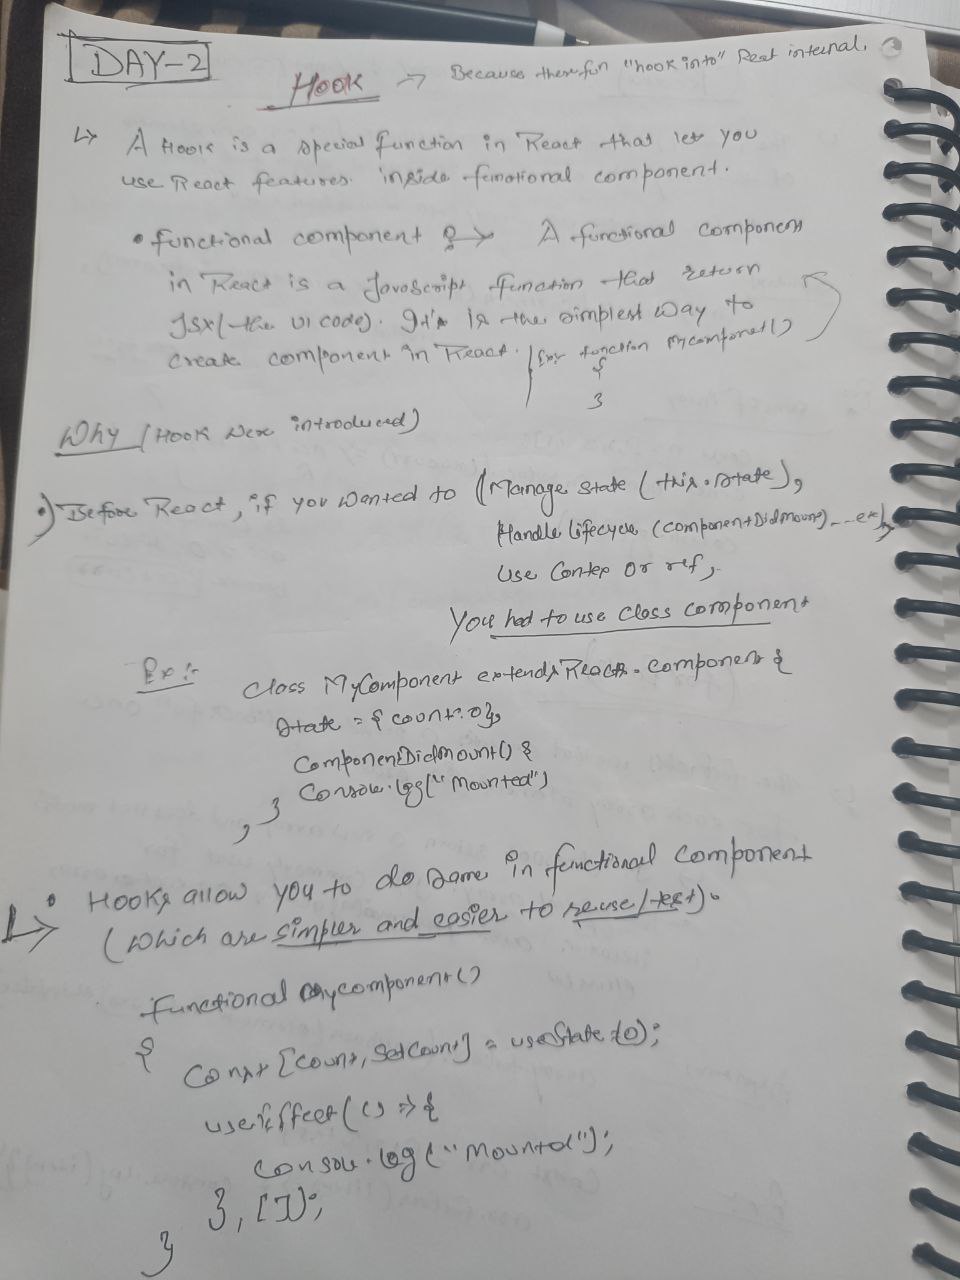 DAY-2
Hook → Because these fun "hook into" React internal.
↳ A Hook is a special function in React that let you
use React features inside functional component.
• functional component :→ A functional component
in React is a Javascript function that return
JSX (the UI code). It's is the simplest way to
create component in React. (Ex:- function Mycomponet()
{
}
Why (Hook were introduced)
•) Before React, if you wanted to (Manage state (this.state),
Handle Lifecycle (componentDidmount)---etc),
Use Contex or ref,
You had to use class component
Ex:-
class MyComponent extends React.component {
state = { count: 0};
ComponentDidmount() {
Console.log("Mounted")
}
}
↳ • Hooks allow you to do same in functional component
(which are simpler and easier to reuse/test).
functional mycomponent()
{
Const [count, setCount] = useState(0);
useEffect(() => {
console.log("Mounted");
}, []);
}